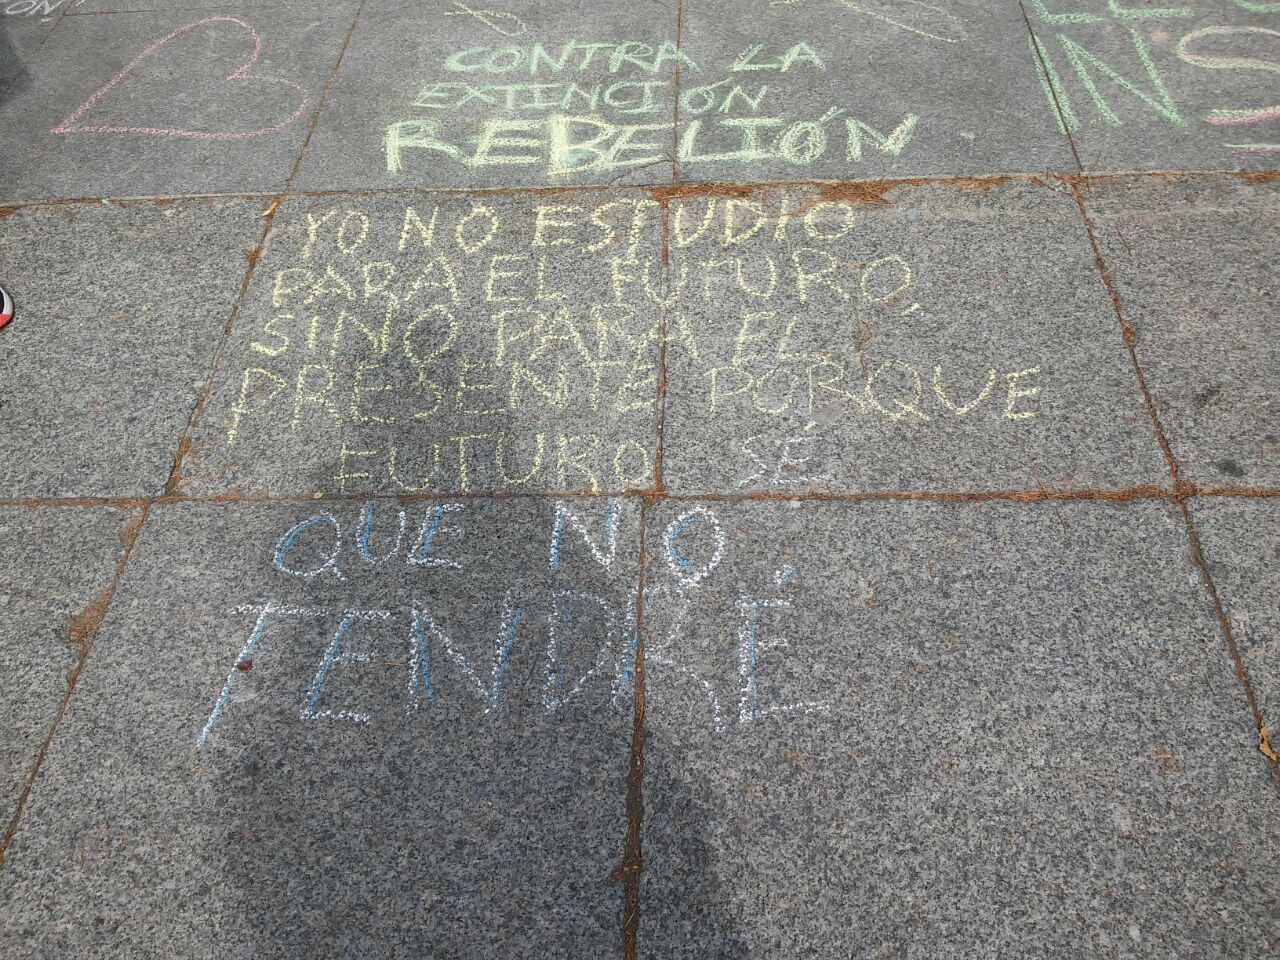 CONTRA LA
EXTINCIÓN
REBELIÓN
YO NO ESTUDIO
PARA EL FUTURO,
SINO PARA EL
PRESENTE PORQUE
FUTURO SÉ
QUE NO
TENDRÉ